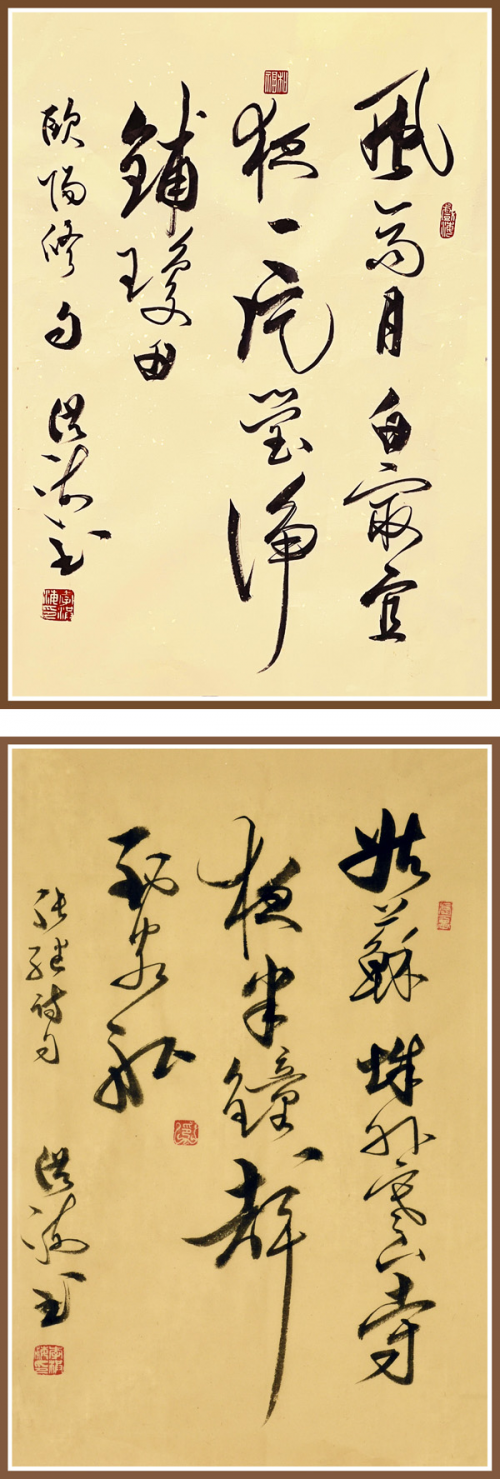 風高月白最宜
夜一片瑩淨
鋪瓊田
歐陽修句 洪海書
姑蘇城外寒山寺
夜半鐘聲
到客船
張繼詩句
洪海書